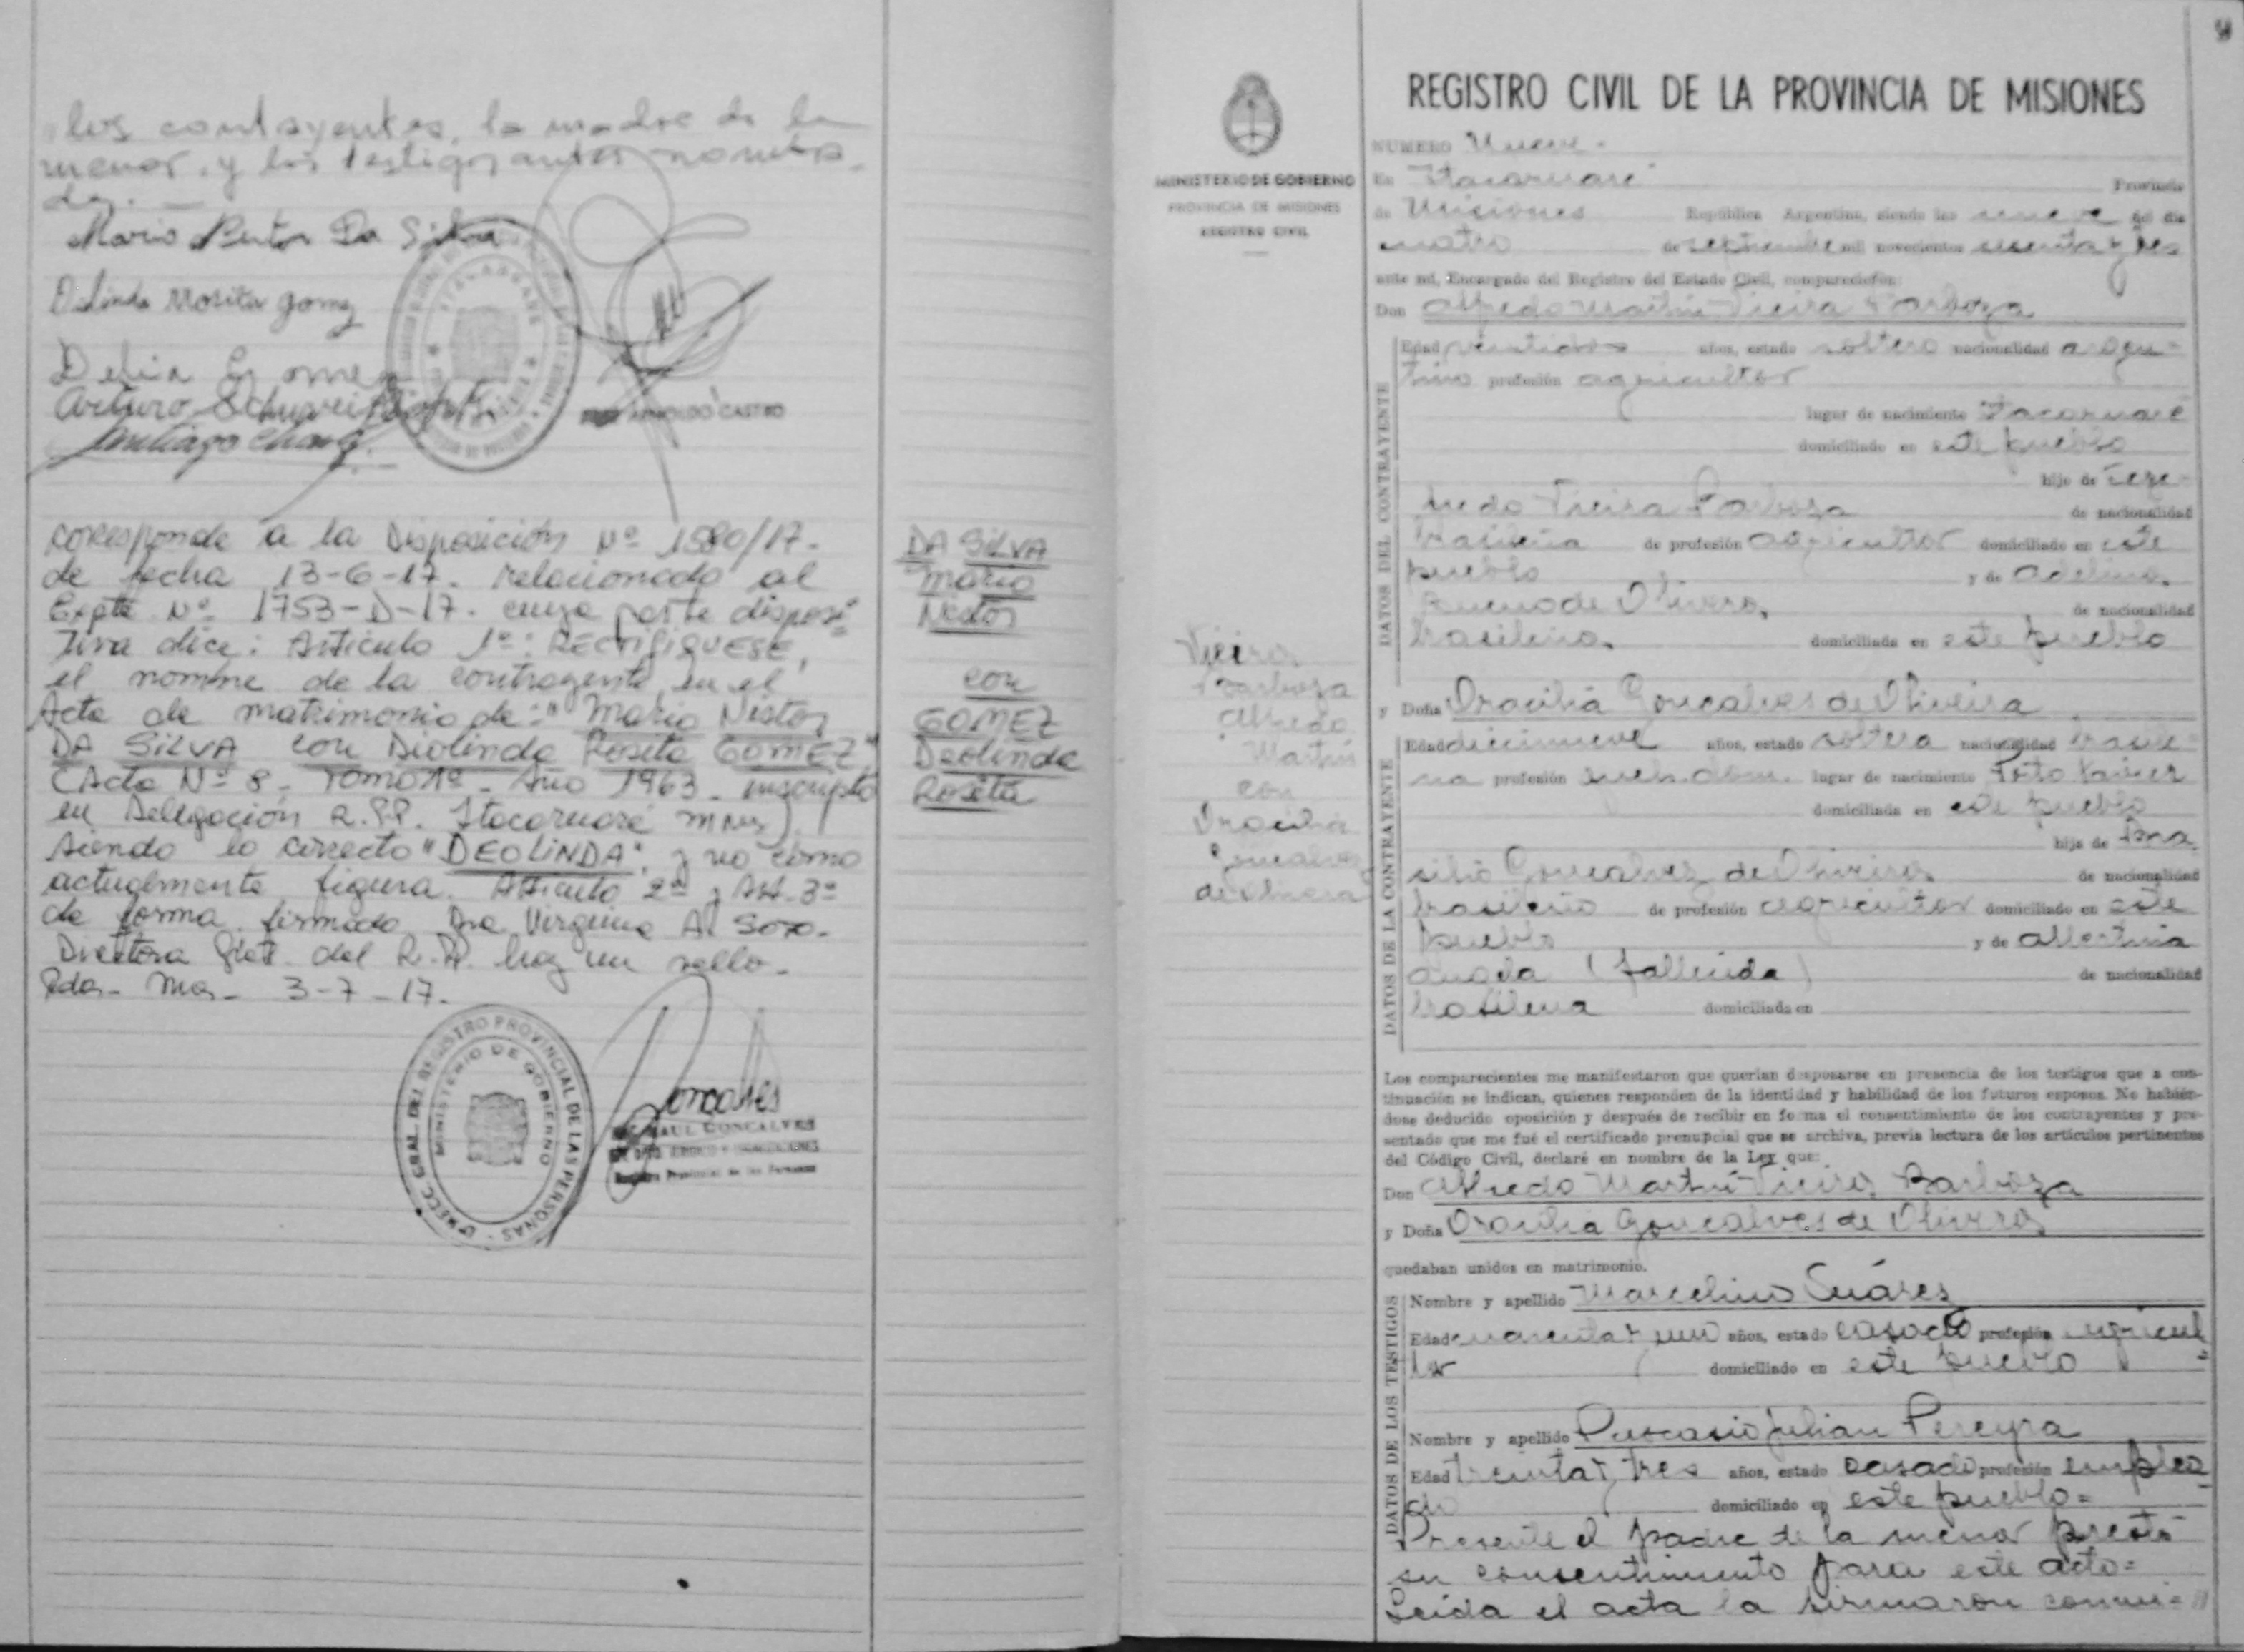 los contrayentes, la madre de la
menor, y los testigos antes nombra-
dos. —
Mario Da Silva
Rosita Gomez
Delia Gomez
Arturo
Santiago
ARNOLDO CASTRO
Corresponde a la Disposición Nº 1580/17-
de fecha 13-6-17. relacionado al
Expte Nº 1753-D-17. cuya parte disposi-
tiva dice: Artículo 1º: RECTIFIQUESE,
el nombre de la contrayente en el
Acta de matrimonio de: "Mario Nestor
DA SILVA con Diolinda Rosita GOMEZ"
(Acta Nº 8 - Tomo 1º - Año 1963 - inscripto
en Delegación R.P.P. Itacaruaré Mnes)
siendo lo correcto "DEOLINDA" y no como
actualmente figura. Artículo 2º y Art. 3º
de forma. firmado Dra Virginia A. Soto.
Directora Gral. del R.P. hay un sello.
Pdas- Mnes- 3-7-17.
DIRECC. GRAL. DEL REGISTRO PROVINCIAL DE LAS PERSONAS
MINISTERIO DE GOBIERNO
Goncalves
RAUL GONCALVES
Registro Provincial de las Personas
DA SILVA
Mario
Nestor
con
GOMEZ
Deolinda
Rosita
9
MINISTERIO DE GOBIERNO
PROVINCIA DE MISIONES
REGISTRO CIVIL
Vieira
Barboza
Alfredo
Martin
con
Oracilia
Goncalves
de Oliveira
REGISTRO CIVIL DE LA PROVINCIA DE MISIONES
NUMERO Nueve.-
En Itacaruaré Provincia
de Misiones República Argentina, siendo las nueve del día
cuatro de septiembre mil novecientos sesenta y tres
ante mí, Encargado del Registro del Estado Civil, comparecieron:
Don Alfredo Martin Vieira Barboza
DATOS DEL CONTRAYENTE
Edad veintidos años, estado soltero nacionalidad argen-
tino profesión agricultor
lugar de nacimiento Itacaruaré
domiciliado en este pueblo
hijo de
Vieira Barboza de nacionalidad
brasileña de profesión agricultor domiciliado en este
pueblo y de Adelina
Bueno de Olivera, de nacionalidad
brasileña, domiciliada en este pueblo
y Doña Oracilia Goncalves de Oliveira
DATOS DE LA CONTRAYENTE
Edad diecinueve años, estado soltera nacionalidad brasile-
na profesión dom. lugar de nacimiento Porto Xavier
domiciliada en este pueblo
hija de Bra-
silio Goncalves de Oliveira de nacionalidad
brasileño de profesión agricultor domiciliado en este
pueblo y de Albertina
Angela (fallecida) de nacionalidad
brasilena domiciliada en
Los comparecientes me manifestaron que querían desposarse en presencia de los testigos que a con-
tinuación se indican, quienes responden de la identidad y habilidad de los futuros esposos. No habién-
dose deducido oposición y después de recibir en forma el consentimiento de los contrayentes y pre-
sentado que me fué el certificado prenupcial que se archiva, previa lectura de los artículos pertinentes
del Código Civil, declaré en nombre de la Ley que:
Don Alfredo Martin Vieira Barboza
y Doña Oracilia Goncalves de Olivera
quedaban unidos en matrimonio.
DATOS DE LOS TESTIGOS
Nombre y apellido Marcelino Suáres
Edad cuarenta y uno años, estado casado profesión agricul-
tor domiciliado en este pueblo
Nombre y apellido Pascasio Julian Pereyra
Edad treinta y tres años, estado casado profesión emplea-
do domiciliado en este pueblo=
Presente el padre de la menor prestó
su consentimiento para este acto=
Leida el acta la firmaron conmi=